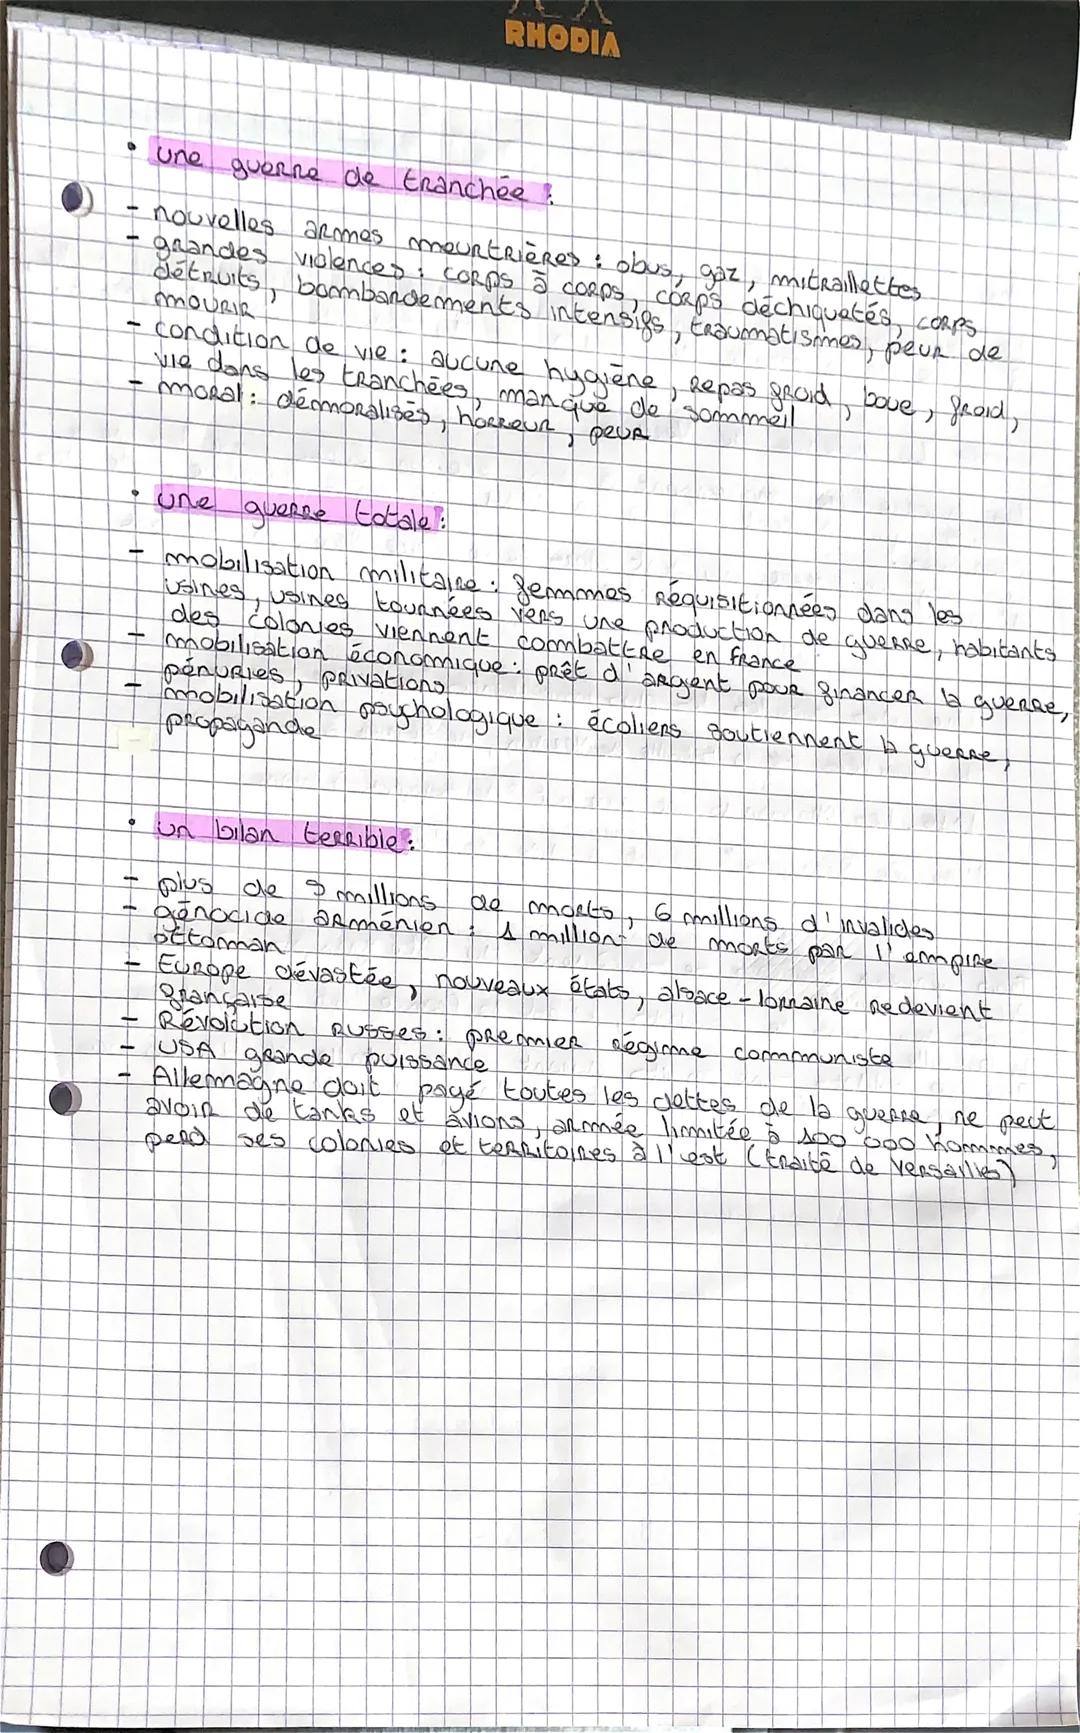 RHODIA
• une guerre de tranchée :
- nouvelles armes meurtrières : obus, gaz, mitraillettes
- grandes violences : corps à corps, corps déchiquetés, corps
détruits, bombardements intensifs, traumatismes, peur de
mourir
- condition de vie : aucune hygiène, repas froid, boue, froid,
vie dans les tranchées, manque de sommeil
- moral : démoralisés, horreur, peur
• une guerre totale :
- mobilisation militaire : femmes réquisitionnées dans les
usines, usines tournées vers une production de guerre, habitants
des colonies viennent combattre en france
- mobilisation économique : prêt d'argent pour financer la guerre,
pénuries, privations
- mobilisation psychologique : écoliers soutiennent la guerre,
propagande
• un bilan terrible :
- plus de 9 millions de morts, 6 millions d'invalides
- génocide arménien : 1 million de morts par l'empire
ottoman
- Europe dévastée, nouveaux états, alsace-lorraine redevient
française
- Révolution russes : premier régime communiste
- USA grande puissance
- Allemagne doit payé toutes les dettes de la guerre, ne peut
avoir de tanks et avions, armée limitée à 100 000 hommes,
perd ses colonies et territoires à l'est (traité de Versailles)